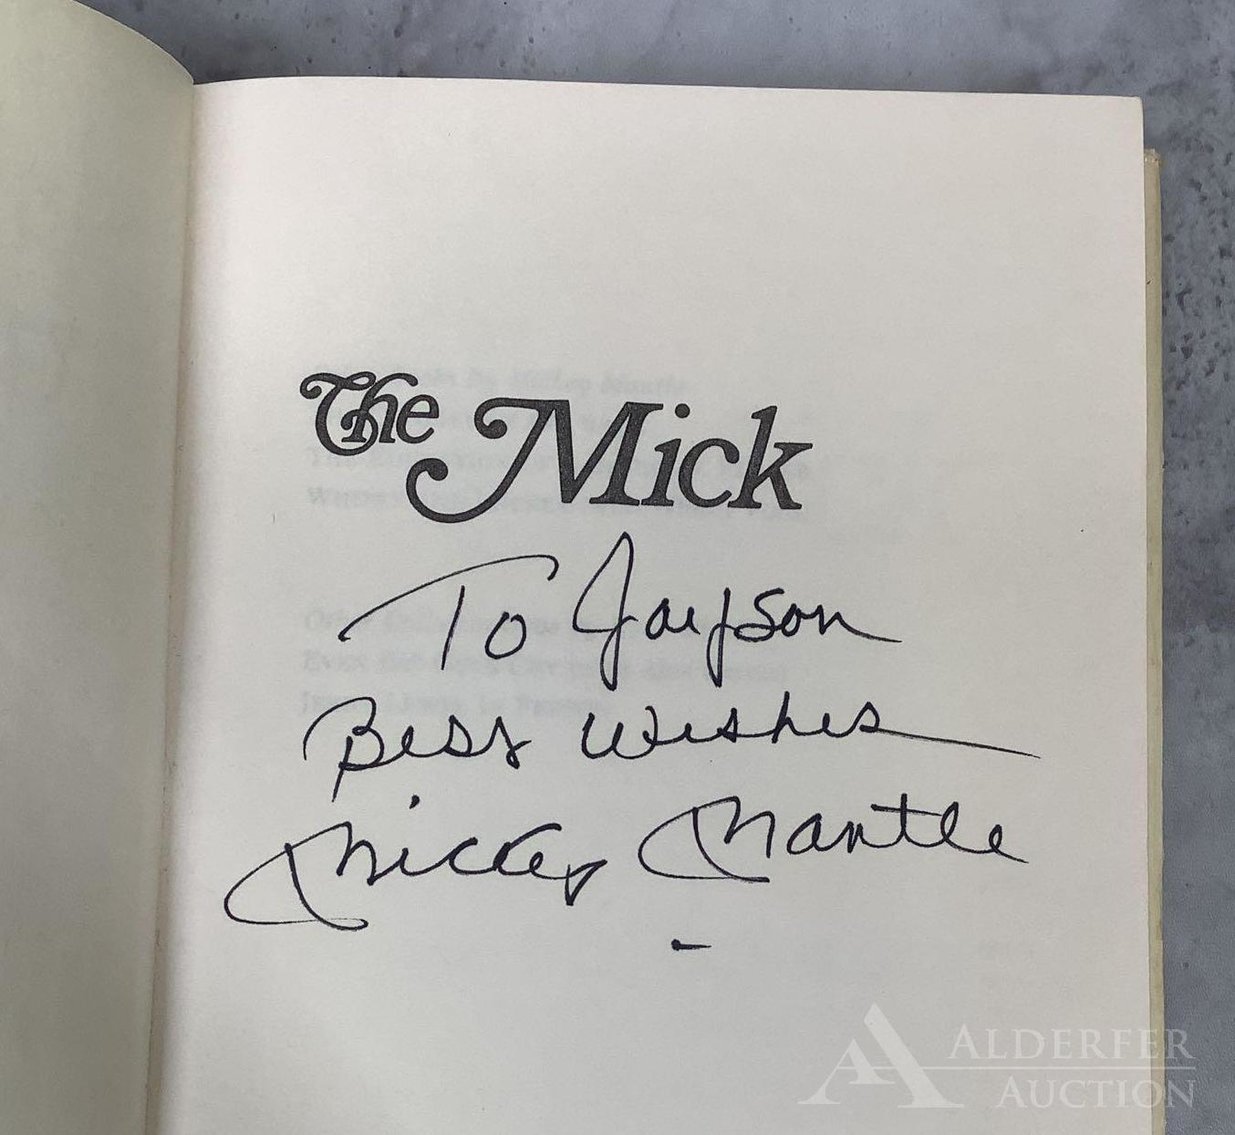 The Mick
To Jaypson
Best Wishes
Mickey Mantle
ALDERFER
AUCTION